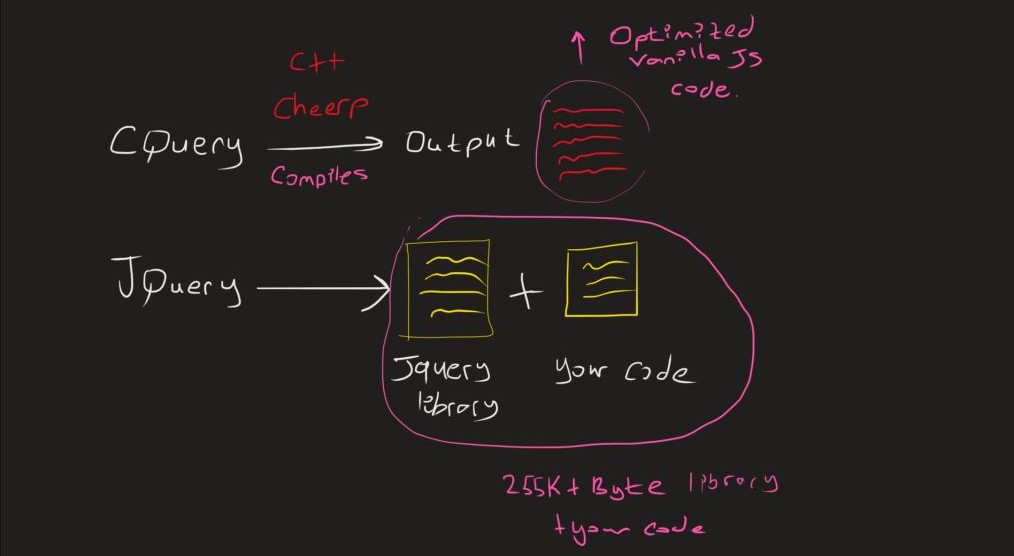 C++
Cheerp
CQuery
Compiles
Output
Optimized
vanilla JS
code.
JQuery
+
Jquery
library
your code
255K+ Byte library
+ your code